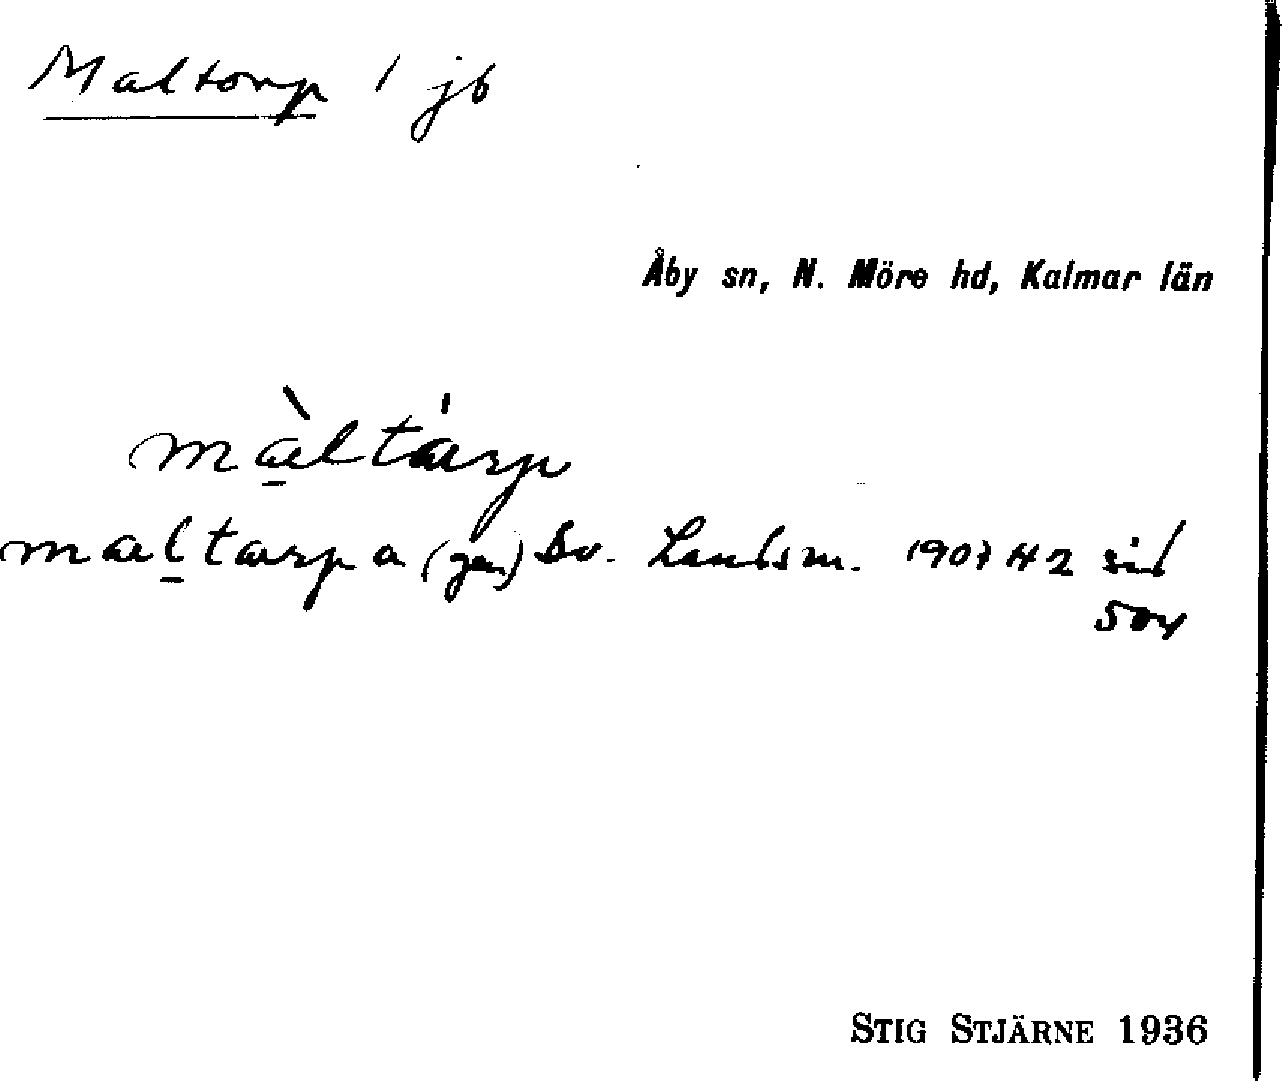 Maltorp 1 jb
Åby sn, N. Möre hd, Kalmar län
màltárp
maltarpa (gen) Sv. Landsm. 1907 H 2 sid
504
STIG STJÄRNE 1936